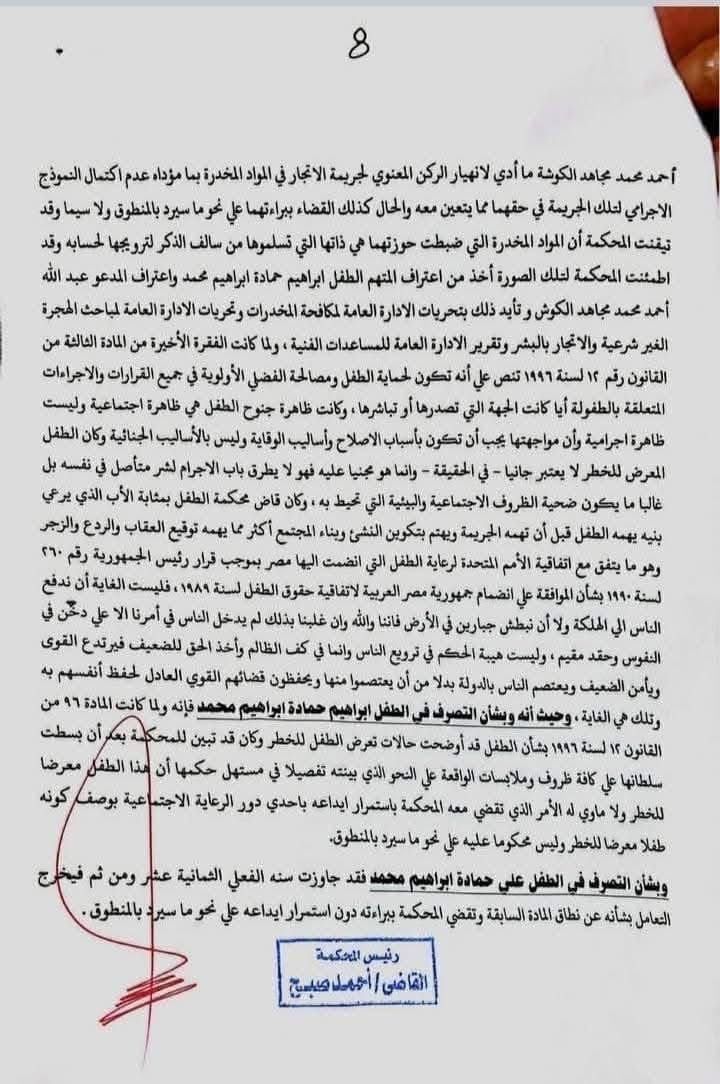 8
أحمد محمد مجاهد الكوشة ما أدي لانهيار الركن المعنوي لجريمة الاتجار في المواد المخدرة بما مؤداه عدم اكتمال النموذج
الاجرامي لتلك الجريمة في حقهما مما يتعين معه والحال كذلك القضاء ببراءتهما علي نحو ما سيرد بالمنطوق ولا سيما وقد
تيقنت المحكمة أن المواد المخدرة التي ضبطت حوزتهما هي ذاتها التي تسلموها من سالف الذكر لترويجها لحسابه وقد
اطمئنت المحكمة لتلك الصورة أخذ من اعتراف المتهم الطفل ابراهيم حمادة ابراهيم محمد واعتراف المدعو عبد الله
أحمد محمد مجاهد الكوش و تأيد ذلك بتحريات الادارة العامة لمكافحة المخدرات وتحريات الادارة العامة لمباحث الهجرة
الغير شرعية والاتجار بالبشر وتقرير الادارة العامة للمساعدات الفنية ، ولما كانت الفقرة الأخيرة من المادة الثالثة من
القانون رقم ١٢ لسنة ١٩٩٦ تنص علي أنه تكون لحماية الطفل ومصالحة الفضلي الأولوية في جميع القرارات والاجراءات
المتعلقة بالطفولة أيا كانت الجهة التي تصدرها أو تباشرها ، وكانت ظاهرة جنوح الطفل هي ظاهرة اجتماعية وليست
ظاهرة اجرامية وأن مواجهتها يجب أن تكون بأسباب الاصلاح وأساليب الوقاية وليس بالأساليب الجنائية وكان الطفل
المعرض للخطر لا يعتبر جانيا - في الحقيقة - وانما هو مجنيا عليه فهو لا يطرق باب الاجرام لشر متأصل في نفسه بل
غالبا ما يكون ضحية الظروف الاجتماعية والبيئية التي تحيط به ، وكان قاض محكمة الطفل بمثابة الأب الذي يرعي
بنيه يهمه الطفل قبل أن تهمه الجريمة ويهتم بتكوين النشئ وبناء المجتمع أكثر مما يهمه توقيع العقاب والردع والزجر
وهو ما يتفق مع اتفاقية الأمم المتحدة لرعاية الطفل التي انضمت اليها مصر بموجب قرار رئيس الجمهورية رقم ٢٦٠
لسنة ١٩٩٠ بشأن الموافقة علي انضمام جمهورية مصر العربية لاتفاقية حقوق الطفل لسنة ١٩٨٩ ، فليست الغاية أن ندفع
الناس الي الهلكة ولا أن نبطش جبارين في الأرض فاننا والله وان غلبنا بذلك لم يدخل الناس في أمرنا الا علي دخن في
النفوس وحقد مقيم ، وليست هيبة الحكم في ترويع الناس وانما في كف الظالم وأخذ الحق للضعيف فيرتدع القوى
ويأمن الضعيف ويعتصم الناس بالدولة بدلا من أن يعتصموا منها ويحفظون قضائهم القوي العادل لحفظ أنفسهم به
وتلك هي الغاية ، وحيث أنه وبشأن التصرف في الطفل ابراهيم حمادة ابراهيم محمد فإنه ولما كانت المادة ٩٦ من
القانون ١٢ لسنة ١٩٩٦ بشأن الطفل قد أوضحت حالات تعرض الطفل للخطر وكان قد تبين للمحكمة بعد أن بسطت
سلطانها علي كافة ظروف وملابسات الواقعة علي النحو الذي بينته تفصيلا في مستهل حكمها أن هذا الطفل معرضا
للخطر ولا ماوي له الأمر الذي تقضي معه المحكمة باستمرار ايداعه باحدي دور الرعاية الاجتماعية بوصف كونه
طفلا معرضا للخطر وليس محكوما عليه علي نحو ما سيرد بالمنطوق.
وبشأن التصرف في الطفل علي حمادة ابراهيم محمد فقد جاوزت سنه الفعلي الثمانية عشر ومن ثم فيخرج
التعامل بشأنه عن نطاق المادة السابقة وتقضي المحكمة ببراءته دون استمرار ايداعه علي نحو ما سيرد بالمنطوق .
رئيس المحكمة
القاضى / أحمد صبيح